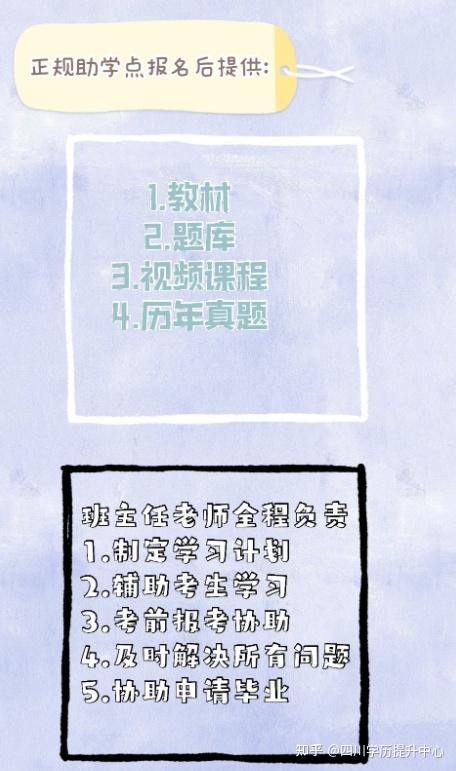 正规助学点报名后提供:
1.教材
2.题库
3.视频课程
4.历年真题
班主任老师全程负责
1.制定学习计划
2.辅助考生学习
3.考前报考协助
4.及时解决所有问题
5.协助申请毕业
知乎 @四川学历提升中心